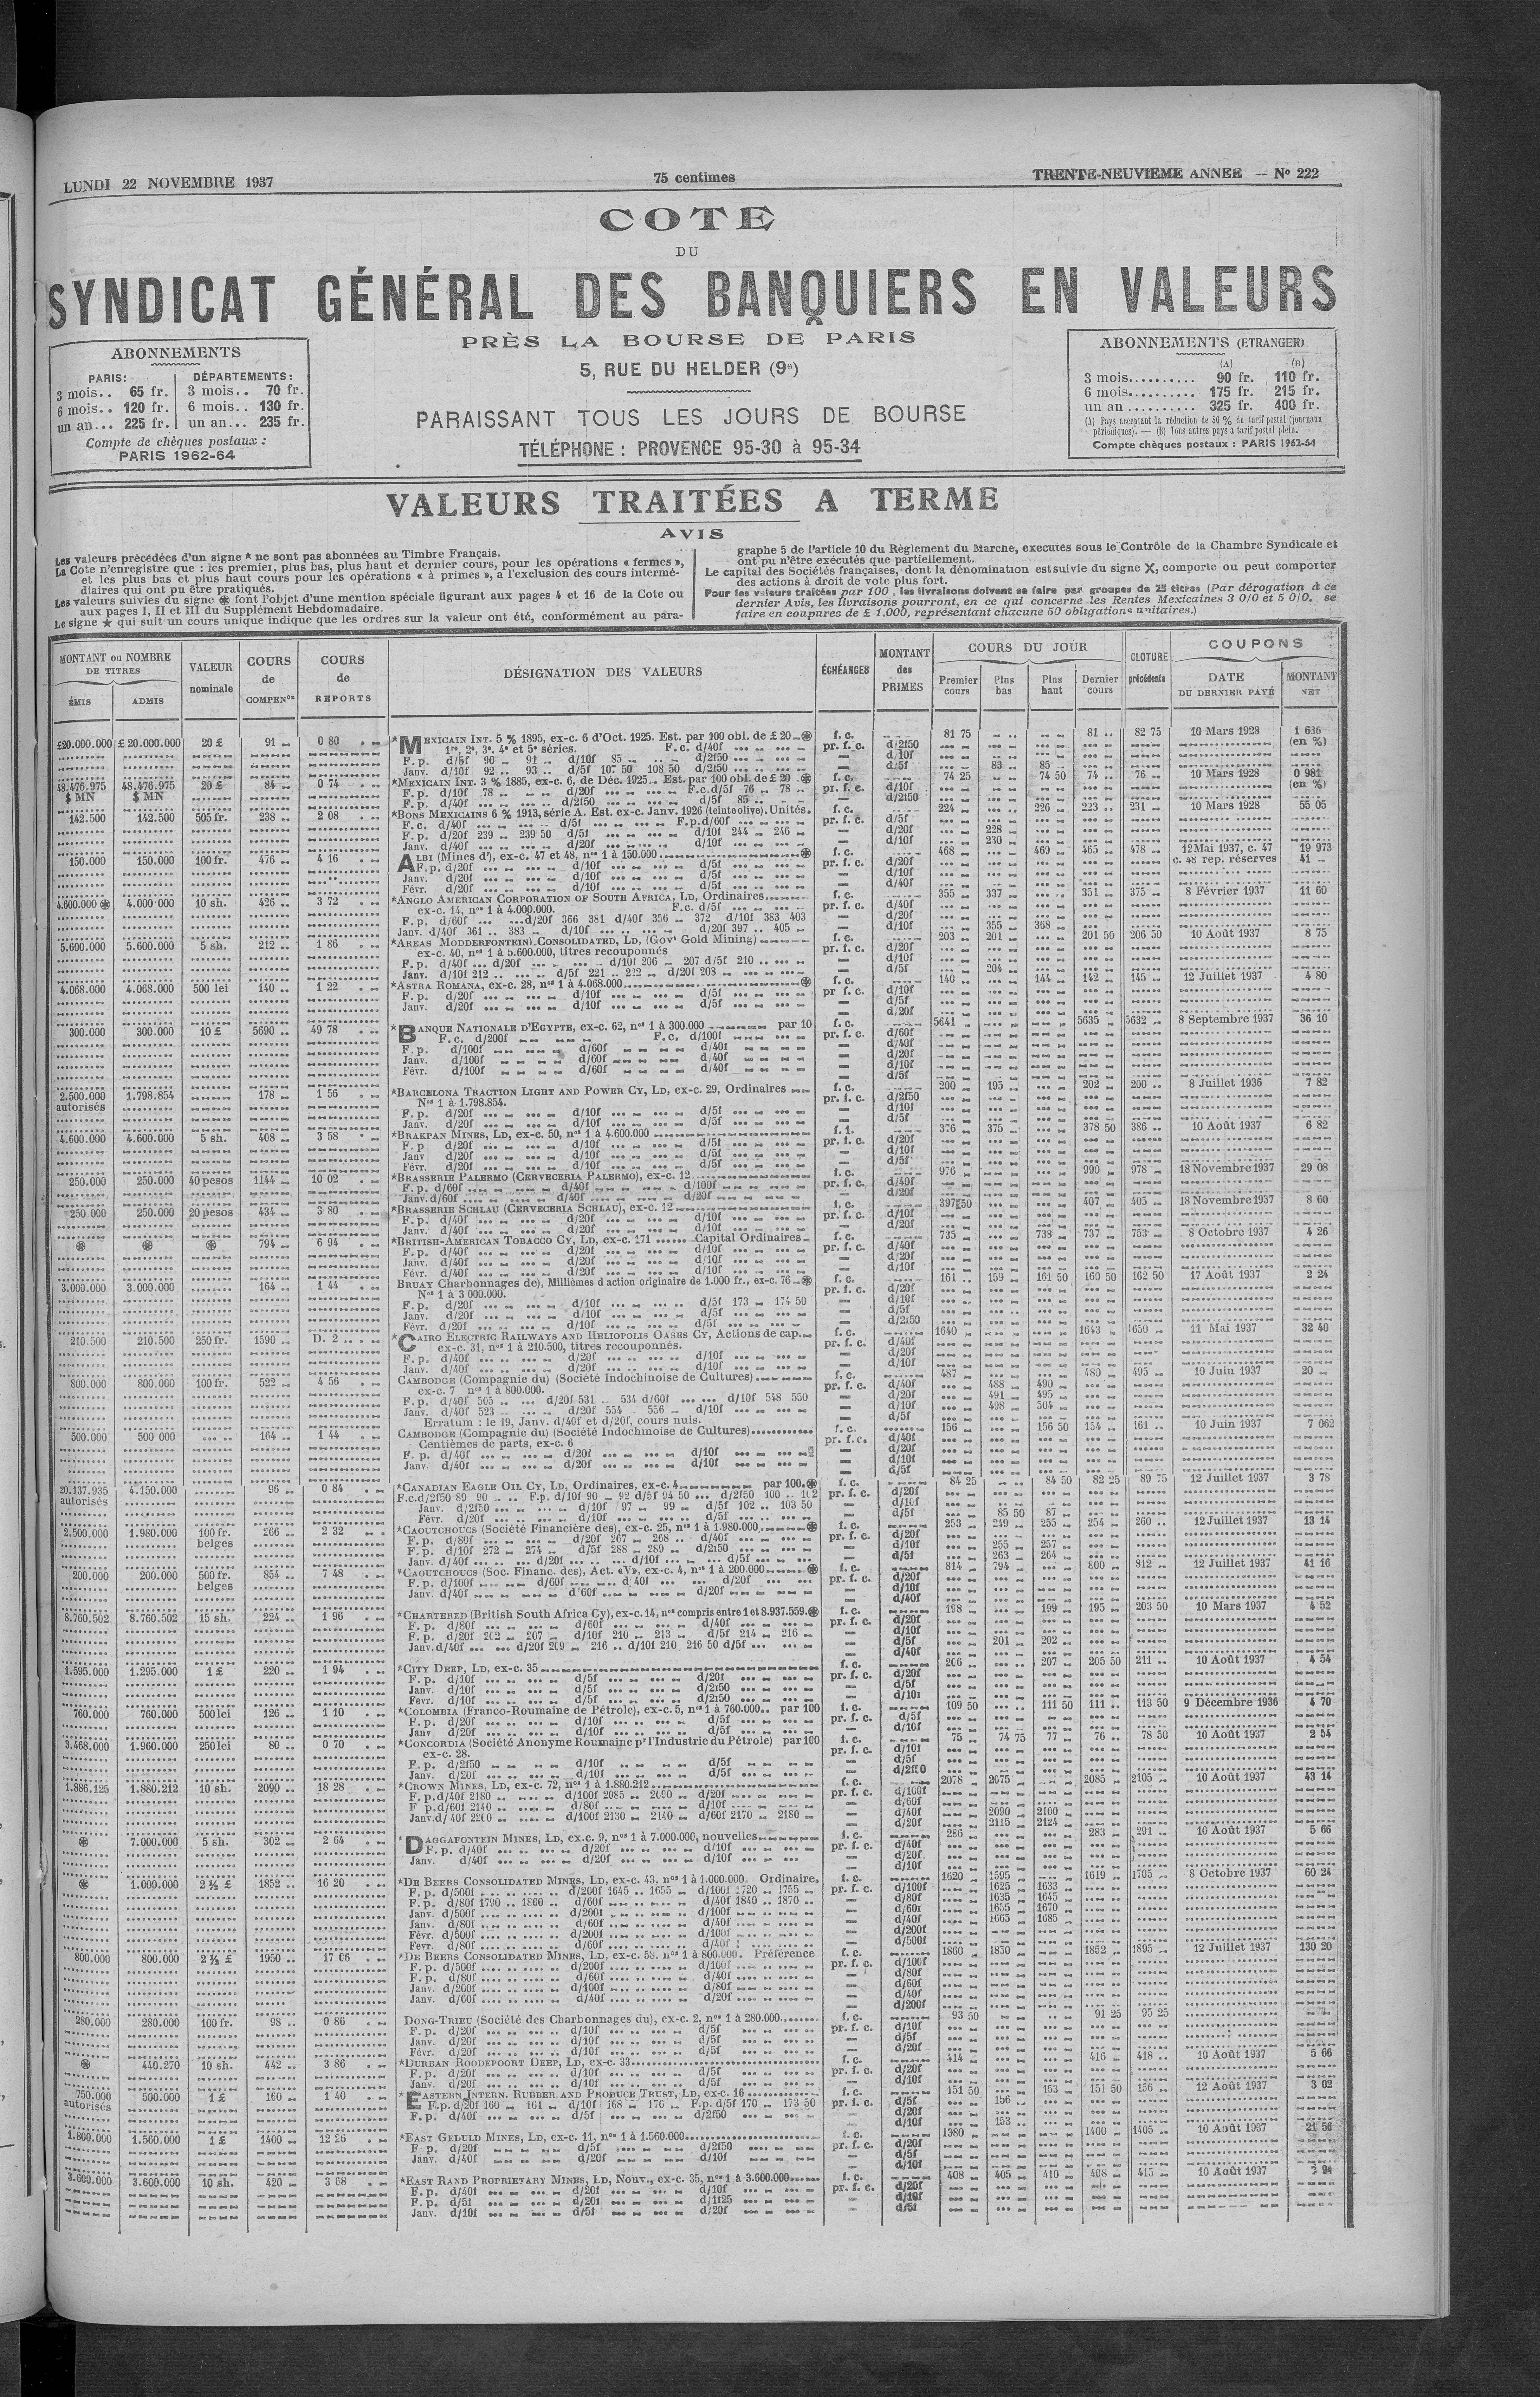 LUNDI 22 NOVEMBRE 1937
75 centimes
TRENTE-NEUVIEME ANNEE — N° 222
COTE
DU
SYNDICAT GÉNÉRAL DES BANQUIERS EN VALEURS
PRÈS LA BOURSE DE PARIS
5, RUE DU HELDER (9e)
PARAISSANT TOUS LES JOURS DE BOURSE
TÉLÉPHONE : PROVENCE 95-30 à 95-34
ABONNEMENTS
PARIS: DÉPARTEMENTS:
3 mois.. 65 fr. 3 mois.. 70 fr.
6 mois.. 120 fr. 6 mois.. 130 fr.
un an... 225 fr. un an... 235 fr.
Compte de chèques postaux :
PARIS 1962-64
ABONNEMENTS (ETRANGER)
(A) (B)
3 mois.......... 90 fr. 110 fr.
6 mois.......... 175 fr. 215 fr.
un an .......... 325 fr. 400 fr.
(A) Pays acceptant la réduction de 50 % du tarif postal (journaux
périodiques). — (B) Tous autres pays à tarif postal plein.
Compte chèques postaux : PARIS 1962-64
VALEURS TRAITÉES A TERME
AVIS
Les valeurs précédées d'un signe * ne sont pas abonnées au Timbre Français.
La Cote n'enregistre que : les premier, plus bas, plus haut et dernier cours, pour les opérations « fermes »,
et les plus bas et plus haut cours pour les opérations « à primes », a l'exclusion des cours intermé-
diaires qui ont pu être pratiqués.
Les valeurs suivies du signe ⊛ font l'objet d'une mention spéciale figurant aux pages 4 et 16 de la Cote ou
aux pages I, II et III du Supplément Hebdomadaire.
Le signe ★ qui suit un cours unique indique que les ordres sur la valeur ont été, conformément au para-
graphe 5 de l'article 10 du Règlement du Marche, executés sous le Contrôle de la Chambre Syndicale et
ont pu n'être exécutés que partiellement.
Le capital des Sociétés françaises, dont la dénomination est suivie du signe X, comporte ou peut comporter
des actions à droit de vote plus fort.
Pour les valeurs traitées par 100, les livraisons doivent se faire par groupes de 25 titres (Par dérogation à ce
dernier Avis, les livraisons pourront, en ce qui concerne les Rentes Mexicaines 3 0/0 et 5 0/0, se
faire en coupures de £ 1.000, représentant chacune 50 obligations unitaires.)
MONTANT ou NOMBRE DE TITRES
ÉMIS ADMIS
VALEUR nominale
COURS de COMPENon
COURS de REPORTS
DÉSIGNATION DES VALEURS
ÉCHÉANCES
MONTANT des PRIMES
COURS DU JOUR
Premier cours Plus bas Plus haut Dernier cours
CLOTURE précédente
COUPONS
DATE DU DERNIER PAYÉ
MONTANT NET
£20.000.000 £ 20.000.000 20 £ 91 0 80 *MEXICAIN INT. 5 % 1895, ex-c. 6 d'Oct. 1925. Est. par 100 obl. de £ 20 ⊛ f. c. 81 75 81 82 75 10 Mars 1928 1 636
1re, 2e, 3e, 4e et 5e séries. F.c. d/40f pr. f. c. d/2f50 (en %)
F. p. d/5f 90 91 d/10f 85 d/2f50 d/10f
Janv. d/10f 92 93 d/5f 107 50 108 50 d/2f50 d/5f 83 85
48.476.975 48.476.975 20 £ 84 0 74 *MEXICAIN INT. 3 % 1885, ex-c. 6, de Déc. 1925.. Est. par 100 obl. de £ 20 ⊛ f. c. 74 25 74 50 74 76 10 Mars 1928 0 981
$ MN $ MN F. p. d/10f 78 d/20f F.c. d/5f 76 78 pr. f. c. d/10f (en %)
F. p. d/40f d/2f50 d/5f 85 d/2f50
142.500 142.500 505 fr. 238 2 08 *BONS MEXICAINS 6 % 1913, série A. Est. ex-c. Janv. 1926 (teinte olive). Unités. f. c. 224 226 223 231 10 Mars 1928 55 05
F. c. d/40f d/5f F.p. d/60f pr. f. c. d/5f
F. p. d/20f 239 239 50 d/5f d/10f 244 246 d/20f 228
Janv. d/40f d/20f d/10f d/10f 230
150.000 150.000 100 fr. 476 4 16 ALBI (Mines d'), ex-c. 47 et 48, nos 1 à 150.000 ⊛ f. c. 468 469 465 478 12 Mai 1937, c. 47 19 973
F. p. d/20f d/10f d/5f pr. f. c. d/20f c. 48 rep. réserves 41
Janv. d/20f d/10f d/5f d/10f
Févr. d/20f d/10f d/5f d/40f
4.600.000 ⊛ 4.000.000 10 sh. 426 3 72 *ANGLO AMERICAN CORPORATION OF SOUTH AFRICA, LD, Ordinaires f. c. 355 337 351 375 8 Février 1937 11 60
ex-c. 14, nos 1 à 4.000.000. F.c. d/5f pr. f. c. d/40f
F. p. d/60f d/20f 366 381 d/40f 356 372 d/10f 383 403 d/20f
Janv. d/40f 361 383 d/10f d/20f 397 405 d/10f 355 368
5.600.000 5.600.000 5 sh. 212 1 86 *AREAS MODDERFONTEIN) CONSOLIDATED, LD, (Govt Gold Mining) f. c. 203 201 201 50 206 50 10 Août 1937 8 75
ex-c. 40, nos 1 à 5.600.000, titres recouponnés pr. f. c. d/20f
F. p. d/40f d/20f d/10f 206 207 d/5f 210 d/10f
Janv. d/10f 212 d/5f 221 222 d/20f 203 d/5f 204
4.068.000 4.068.000 500 lei 140 1 22 *ASTRA ROMANA, ex-c. 28, nos 1 à 4.068.000 ⊛ f. c. 140 144 142 145 12 Juillet 1937 4 80
F. p. d/20f d/10f d/5f pr f. c. d/10f
Janv. d/20f d/10f d/5f d/5f
d/20f
300.000 300.000 10 £ 5690 49 78 *BANQUE NATIONALE D'EGYPTE, ex-c. 62, nos 1 à 300.000 par 10 f. c. 5641 5635 5632 8 Septembre 1937 36 10
F. c. d/200f F. c. d/100f pr. f. c. d/60f
F. p. d/100f d/60f d/40f d/40f
Janv. d/100f d/60f d/40f d/20f
Févr. d/100f d/60f d/40f d/10f
d/5f
2.500.000 1.798.854 178 1 56 *BARCELONA TRACTION LIGHT AND POWER CY, LD, ex-c. 29, Ordinaires f. c. 200 195 202 200 8 Juillet 1936 7 82
autorisés Nos 1 à 1.798.854. pr. f. c. d/2f50
F. p. d/20f d/10f d/5f d/10f
Janv. d/20f d/10f d/5f d/5f
4.600.000 4.600.000 5 sh. 408 3 58 *BRAKPAN MINES, LD, ex-c. 50, nos 1 à 4.600.000 f. c. 376 375 378 50 386 10 Août 1937 6 82
F. p d/20f d/10f d/5f pr. f. c. d/20f
Janv d/20f d/10f d/5f d/10f
Févr. d/20f d/10f d/5f d/5f
250.000 250.000 40 pesos 1144 10 02 *BRASSERIE PALERMO (CERVECERIA PALERMO), ex-c. 12 f. c. 976 990 978 18 Novembre 1937 29 08
F. p. d/60f d/40f d/100f pr. f. c. d/40f
Janv. d/60f d/40f d/20f d/20f
250 000 250.000 20 pesos 434 3 80 *BRASSERIE SCHLAU (CERVECERIA SCHLAU), ex-c. 12 f. c. 397 50 407 405 18 Novembre 1937 8 60
F. p. d/40f d/20f d/10f pr. f. c. d/10f
Janv. d/40f d/20f d/10f d/20f
⊛ ⊛ ⊛ 794 6 94 *BRITISH-AMERICAN TOBACCO CY, LD, ex-c. 171 Capital Ordinaires f. c. 735 739 737 753 8 Octobre 1937 4 26
F. p. d/40f d/20f d/10f pr. f. c. d/40f
Janv. d/40f d/20f d/10f d/20f
Févr. d/40f d/20f d/10f d/10f
3.000.000 3.000.000 164 1 44 BRUAY Charbonnages de), Millièmes d action originaire de 1.000 fr., ex-c. 76 ⊛ f. c. 161 159 161 50 160 50 162 50 17 Août 1937 2 24
Nos 1 à 3 000.000. pr. f. c. d/20f
F. p. d/20f d/10f d/5f 173 174 50 d/10f
Janv. d/20f d/10f d/5f d/5f
Févr. d/20f d/10f d/5f d/2f50
210.500 210.500 250 fr. 1590 D. 2 *CAIRO ELECTRIC RAILWAYS AND HELIOPOLIS OASES CY, Actions de cap. f. c. 1640 1643 1650 11 Mai 1937 32 40
ex-c. 31, nos 1 à 210.500, titres recouponnés. pr. f. c. d/40f
F. p. d/40f d/20f d/10f d/20f
Janv. d/40f d/20f d/10f d/10f
800.000 800.000 100 fr. 522 4 56 CAMBODGE (Compagnie du) (Société Indochinoise de Cultures) f. c. 487 485 495 10 Juin 1937 20
ex-c. 7 nos 1 à 800.000. pr. f. c. d/40f 488 490
F. p. d/40f 505 d/20f 531 534 d/60f d/10f 548 550 d/20f 491 495
Janv. d/40f 523 d/20f 554 556 d/10f d/10f 498 504
Erratum : le 19, Janv. d/40f et d/20f, cours nuls. d/5f
500.000 500 000 164 1 44 CAMBODGE (Compagnie du) (Société Indochinoise de Cultures) f. c. 156 156 50 154 161 10 Juin 1937 7 062
Centièmes de parts, ex-c. 6 pr. f. c. d/40f
F. p. d/40f d/20f d/10f d/20f
Janv. d/40f d/20f d/10f d/10f
d/5f
20.137.935 4.150.000 96 0 84 *CANADIAN EAGLE OIL CY, LD, Ordinaires, ex-c. 4 par 100. ⊛ f. c. 84 25 84 50 82 25 89 75 12 Juillet 1937 3 78
autorisés F.c. d/2f50 89 90 F.p. d/10f 90 92 d/5f 94 50 d/2f50 100 102 pr. f. c. d/20f
Janv. d/2f50 d/10f 97 99 d/5f 102 103 50 d/10f
Févr. d/20f d/10f d/5f d/5f 85 50 87
2.500.000 1.980.000 100 fr. belges 266 2 32 *CAOUTCHOUCS (Société Financière des), ex-c. 25, nos 1 à 1.980.000 ⊛ f. c. 253 249 255 254 260 12 Juillet 1937 13 14
F. p. d/80f d/20f 267 268 d/40f pr. f. c. d/20f
F. p. d/10f 272 274 d/5f 288 289 d/2f50 d/10f 255 257
Janv. d/40f d/20f d/10f d/5f d/5f 263 264
200.000 200.000 500 fr. belges 854 7 48 *CAOUTCHOUCS (Soc. Financ. des), Act. «V», ex-c. 4, nos 1 à 200.000 ⊛ f. c. 814 794 800 812 12 Juillet 1937 41 16
F. p. d/100f d/60f d 40f d/20f pr. f. c. d/20f
Janv. d/40f d'60f d/20f d/10f
d/40f
8.760.502 8.760.502 15 sh. 224 1 96 *CHARTERED (British South Africa Cy), ex-c. 14, nos compris entre 1 et 8.937.559. ⊛ f. c. 198 199 195 203 50 10 Mars 1937 4 52
F. p. d/80f d/60f d/40f pr. f. c. d/20f
F. p. d/20f 202 207 d/10f 210 213 d/5f 214 216 d/10f
Janv. d/40f d/20f 209 216 d/10f 210 216 50 d/5f d/5f 201 202
d/40f
1.595.000 1.295.000 1 £ 220 1 94 *CITY DEEP, LD, ex-c. 35 f. c. 206 207 205 50 211 10 Août 1937 4 54
F. p. d/10f d/5f d/20f pr. f. c. d/20f
Janv. d/10f d/5f d/2f50 d/5f
Févr. d/10f d/5f d/2f50 d/10f
760.000 760.000 500 lei 126 1 10 *COLOMBIA (Franco-Roumaine de Pétrole), ex-c. 5, nos 1 à 760.000.. par 100 f. c. 109 50 111 50 111 113 50 9 Décembre 1936 4 70
F. p. d/20f d/10f d/5f pr. f. c. d/5f
Janv d/20f d/10f d/5f d/10f
3.468.000 1.960.000 250 lei 80 0 70 *CONCORDIA (Société Anonyme Roumaine pr l'Industrie du Pétrole) par 100 f. c. 75 74 75 77 76 78 50 10 Août 1937 2 54
ex-c. 28. pr. f. c. d/10f
F. p. d/2f50 d/10f d/5f d/5f
Janv. d/20f d/10f d/5f d/2f50
1.886.125 1.880.212 10 sh. 2090 18 28 *CROWN MINES, LD, ex-c. 72, nos 1 à 1.880.212 f. c. 2078 2075 2085 2105 10 Août 1937 43 14
F. p. d/40f 2180 d/100f 2085 2090 d/20f pr. f. c. d/100f
F p. d/60f 2140 d/80f d/10f d/60f
Janv. d/ 40f 2200 d/100f 2130 2140 d/60f 2170 2180 d/40f 2090 2100
d/20f 2115 2124
⊛ 7.000.000 5 sh. 302 2 64 *DAGGAFONTEIN MINES, LD, ex.c. 9, nos 1 à 7.000.000, nouvelles f. c. 286 283 291 10 Août 1937 5 66
F. p. d/40f d/20f d/10f pr. f. c. d/40f
Janv. d/40f d/20f d/10f d/20f
d/10f
⊛ 1.000.000 2 ½ £ 1852 16 20 *DE BEERS CONSOLIDATED MINES, LD, ex-c. 43, nos 1 à 1.000.000. Ordinaire, f. c. 1620 1595 1619 1705 8 Octobre 1937 60 24
F. p. d/500f d/200f 1645 1655 d/100f 1720 1755 pr. f. c. d/100f 1625 1633
F. p. d/80f 1790 1800 d/60f d/40f 1840 1870 d/80f 1635 1645
Janv. d/500f d/200f d/100f d/60f 1655 1670
Janv. d/80f d/60f d/40f d/40f 1665 1685
Févr. d/500f d/200f d/100f d/200f
Févr. d/80f d/60f d/40f d/500f
800.000 800.000 2 ½ £ 1950 17 06 *DE BEERS CONSOLIDATED MINES, LD, ex-c. 58. nos 1 à 800.000. Préférence f. c. 1860 1830 1852 1895 12 Juillet 1937 130 20
F. p. d/500f d/200f d/100f pr. f. c. d/100f
F. p. d/80f d/60f d/40f d/80f
Janv. d/200f d/100f d/80f d/60f
Janv. d/60f d/40f d/20f d/40f
d/200f
280.000 280.000 100 fr. 98 0 86 DONG-TRIEU (Société des Charbonnages du), ex-c. 2, nos 1 à 280.000 f. c. 93 50 91 25 95 25
F. p. d/20f d/10f d/5f pr. f. c. d/10f
Janv. d/20f d/10f d/5f d/5f
Févr. d/20f d/10f d/5f d/20f
⊛ 440.270 10 sh. 442 3 86 *DURBAN ROODEPOORT DEEP, LD, ex-c. 33 f. c. 414 416 418 10 Août 1937 5 66
F. p. d/20f d/10f d/5f pr. f. c. d/20f
Janv. d/20f d/10f d/5f d/10f
750.000 500.000 1 £ 160 1 40 *EASTERN INTERN. RUBBER AND PRODUCE TRUST, LD, ex-c. 16 f. c. 151 50 153 151 50 156 12 Août 1937 3 02
autorisés F.p. d/20f 160 161 d/10f 168 170 F.p. d/5f 170 173 50 pr. f. c. d/5f 156
F. p. d/40f d/5f d/2f50 d/20f
d/10f 153
1.800.000 1.560.000 1 £ 1400 12 26 *EAST GEDULD MINES, LD, ex-c. 11, nos 1 à 1.560.000 f. c. 1380 1400 1405 10 Août 1937 21 56
F. p. d/20f d/5f d/2f50 pr. f. c. d/20f
Janv. d/40f d/20f d/10f d/5f
d/10f
3.600.000 3.600.000 10 sh. 420 3 68 *EAST RAND PROPRIETARY MINES, LD, Nouv., ex-c. 35, nos 1 à 3.600.000 f. c. 408 405 410 408 415 10 Août 1937
F. p. d/40f d/20f d/10f pr. f. c. d/20f
F. p. d/5f d/20f d/1f25 d/10f
Janv. d/10f d/5f d/20f d/5f